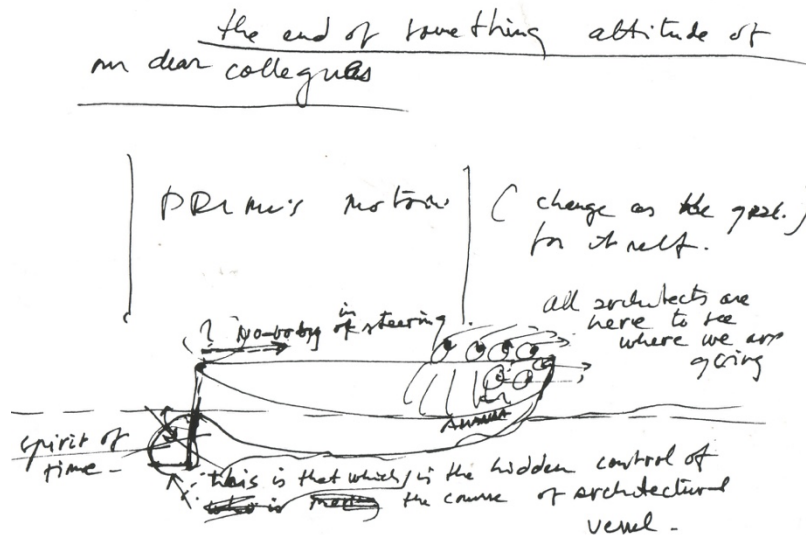 the end of something attitude of
our dear collegues
PRIMUS motorus
( change as the goal )
for itself.
(? No-body in of steering
all architects are
here to see
where we are
going
spirit of
time -
this is that which is the hidden control of
the course of architectural
vessel -